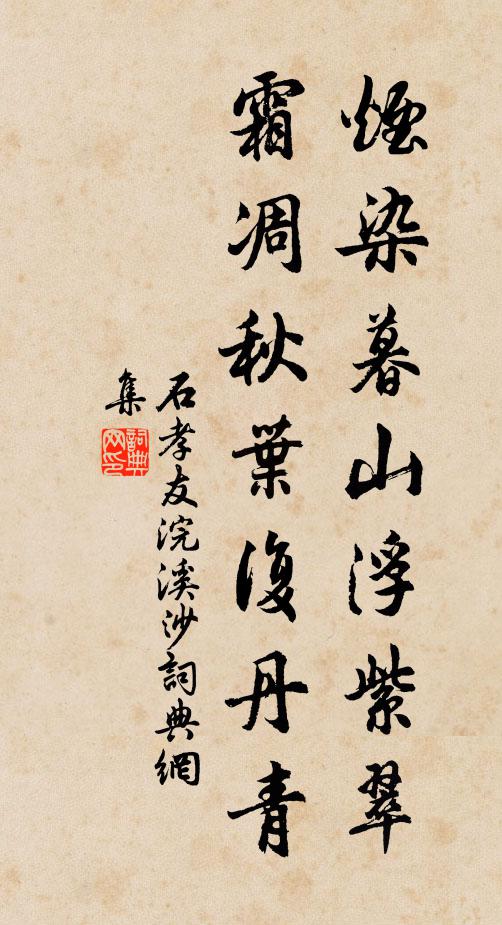 煙染暮山浮紫翠
霜凋秋葉復丹青
石孝友浣溪沙詞典網
集
詞典
网印